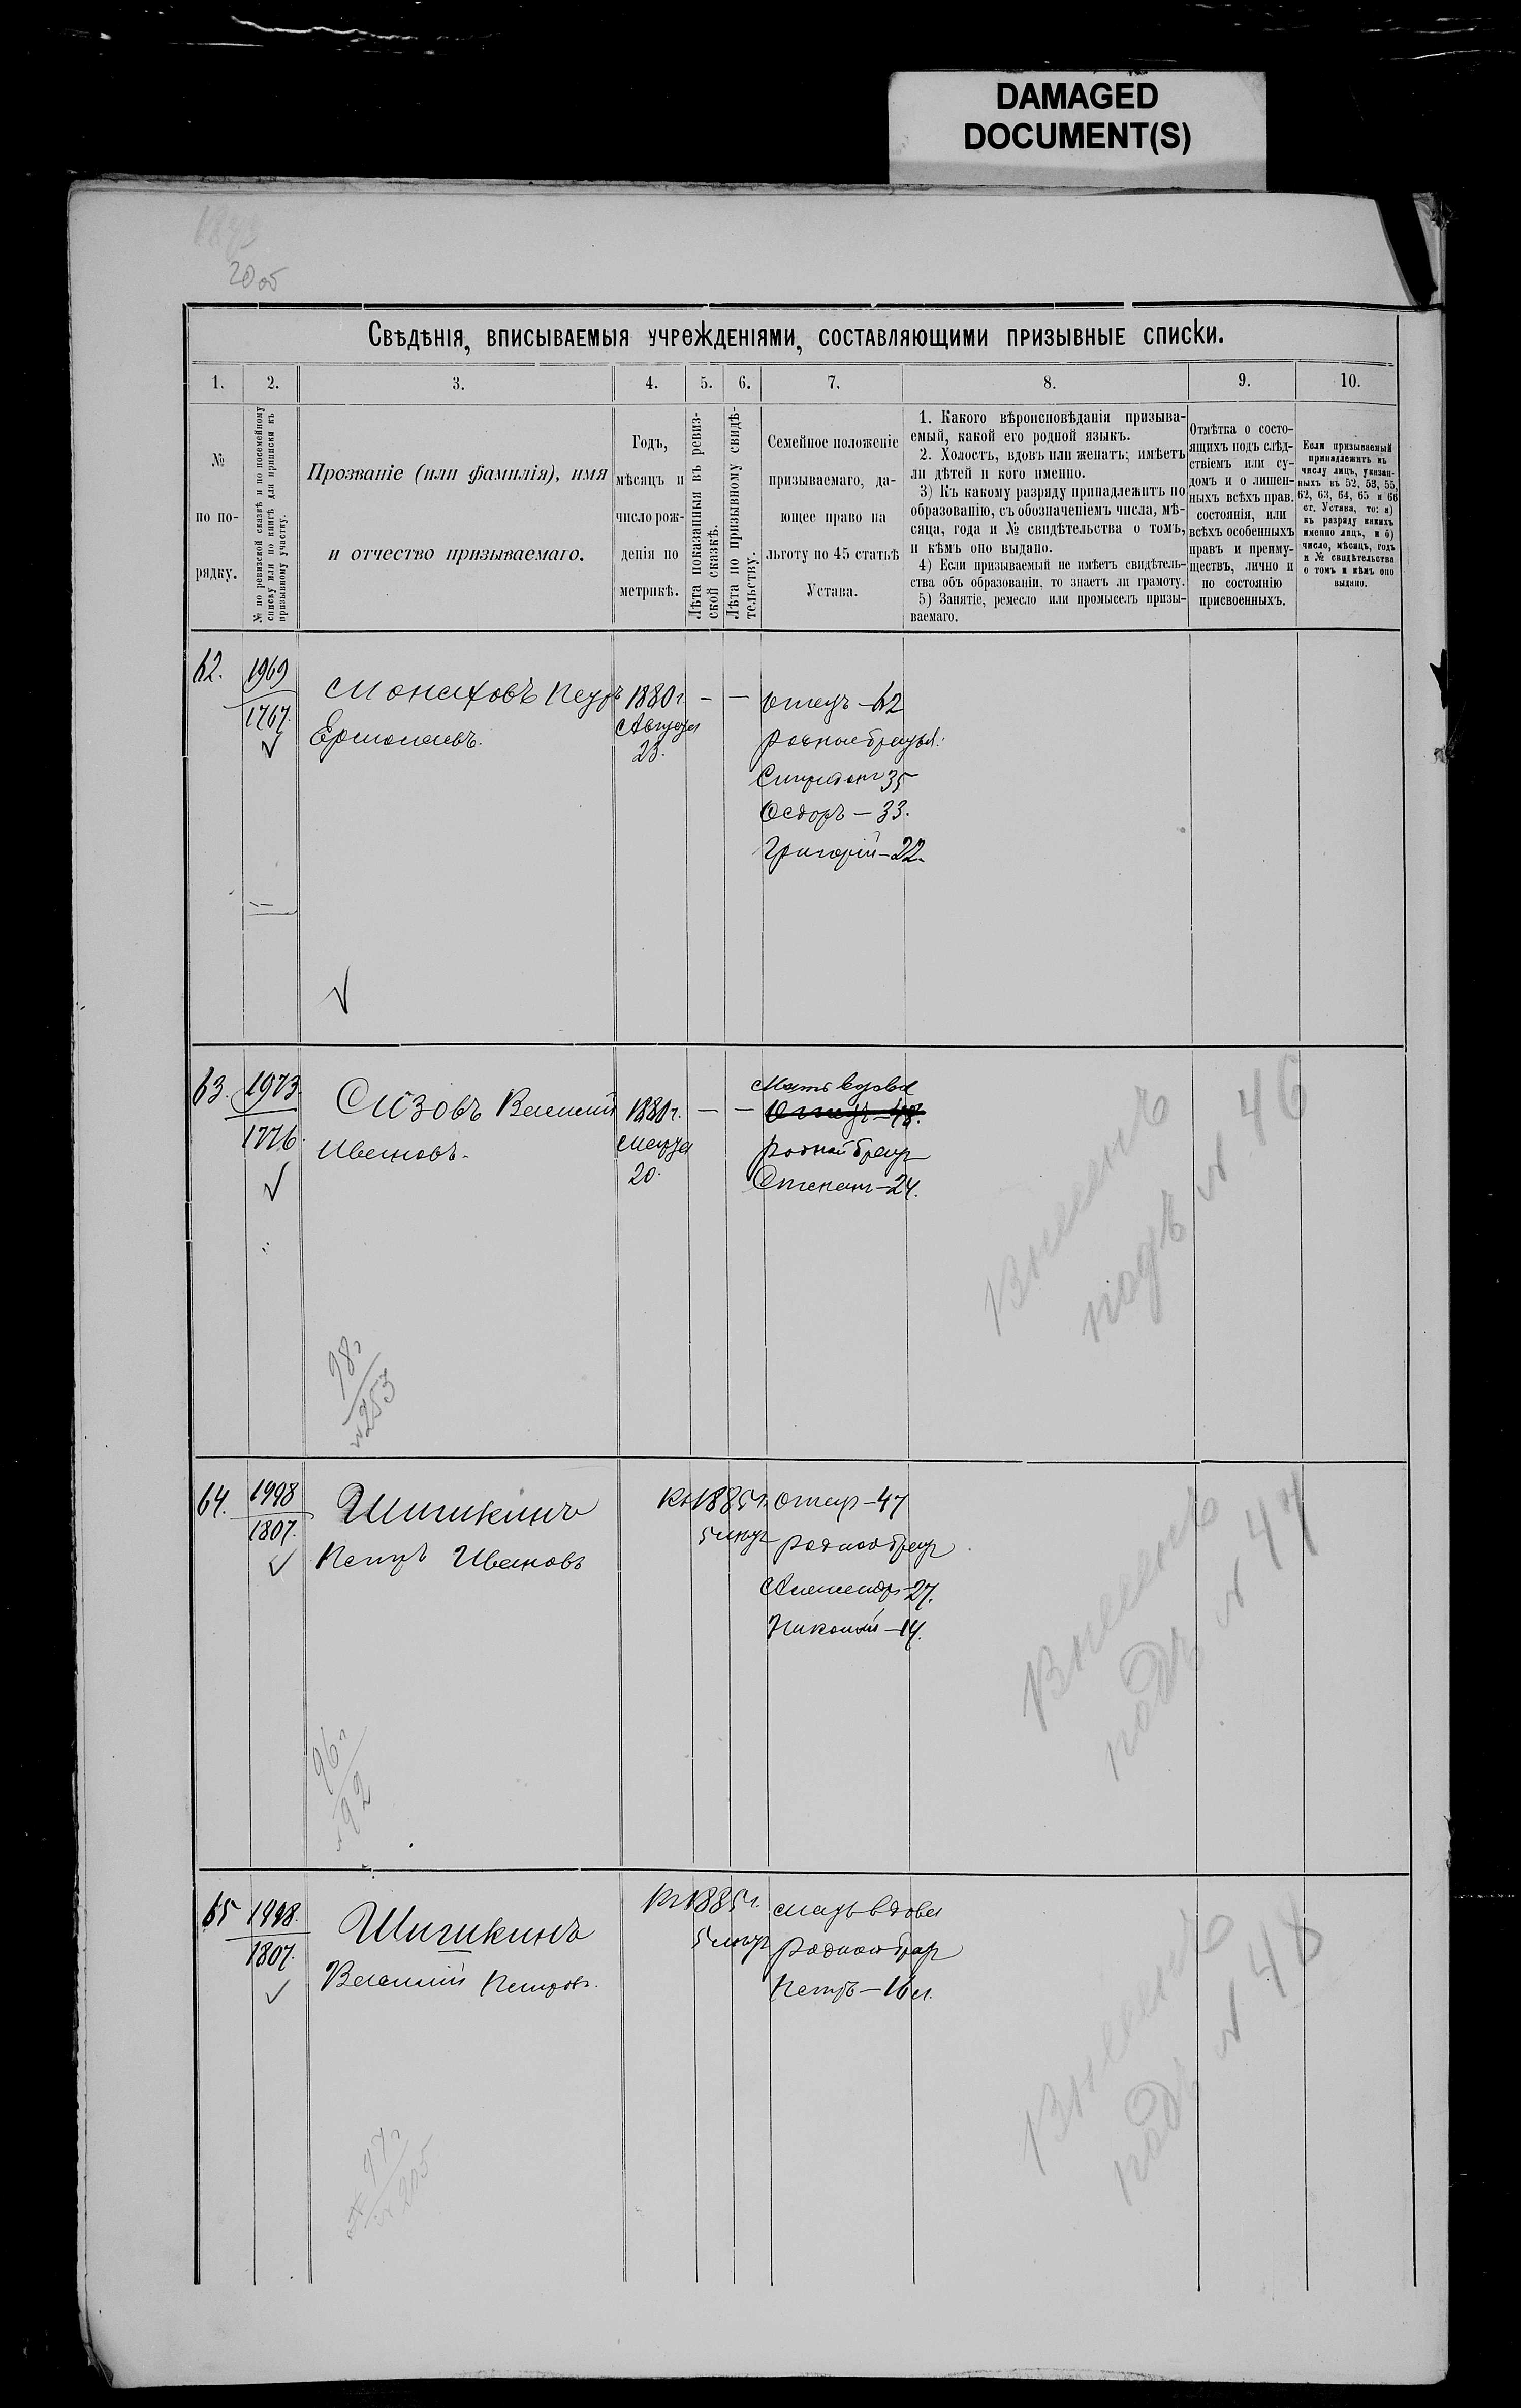 DAMAGED
DOCUMENT(S)
2005
Свѣдѣнія, вписываемыя учрежденіями, составляющими призывные списки.
1. 2. 3. 4. 5. 6. 7. 8. 9. 10.
№
по по-
рядку.
№ по ревизской сказкѣ и по посемейному
списку или по книгѣ для приписки къ
призывному участку.
Прозваніе (или фамилія), имя
и отчество призываемаго.
Годъ,
мѣсяцъ и
число рож-
денія по
метрикѣ.
Лѣта показанныя въ ревиз-
ской сказкѣ.
Лѣта по призывному свидѣ-
тельству.
Семейное положеніе
призываемаго, да-
ющее право на
льготу по 45 статьѣ
Устава.
1. Какого вѣроисповѣданія призыва-
емый, какой его родной языкъ.
2. Холостъ, вдовъ или женатъ; имѣетъ
ли дѣтей и кого именно.
3) Къ какому разряду принадлежитъ по
образованію, съ обозначеніемъ числа, мѣ-
сяца, года и № свидѣтельства о томъ,
и кѣмъ оно выдано.
4) Если призываемый не имѣетъ свидѣтель-
ства объ образованіи, то знаетъ ли грамоту.
5) Занятіе, ремесло или промыселъ призы-
ваемаго.
Отмѣтка о состо-
ящихъ подъ слѣд-
ствіемъ или су-
домъ и о лишен-
ныхъ всѣхъ прав.
состоянія, или
всѣхъ особенныхъ
правъ и преиму-
ществъ, лично и
по состоянію
присвоенныхъ.
Если призываемый
принадлежитъ къ
числу лицъ, указан-
ныхъ въ 52, 53, 55,
62, 63, 64, 65 и 66
ст. Устава, то: а)
къ разряду какихъ
именно лицъ, и б)
число, мѣсяцъ, годъ
и № свидѣтельства
о томъ и кѣмъ оно
выдано.
62. 1969
1767.
Монаховъ Петръ
Ермолаевъ.
1880 г.
Августа
23.
— —
отецъ — 62
родные братья:
Спиридонъ 35
Ѳедоръ — 33.
Григорій — 22.
63. 1973.
1776.
Сизовъ Василій
Ивановъ.
1880 г.
Марта
20.
— —
Мать вдова
Отецъ — 48.
родной братъ
Степанъ — 24.
Внесенъ
подъ № 46
98 г
№ 253
64. 1998
1807.
Шигикинъ
Петръ Ивановъ
Къ 1885 г.
5 лѣтъ
отецъ — 47
родной братъ
Александръ 27.
Николай — 14.
Внесенъ
подъ № 47
96 г
№ 92
65 1998.
1807.
Шигикинъ
Василій Петровъ.
Къ 1885 г.
5 лѣтъ
мать вдова
родной братъ
Петръ — 16 л.
Внесенъ
подъ № 48
97 г
№ 205